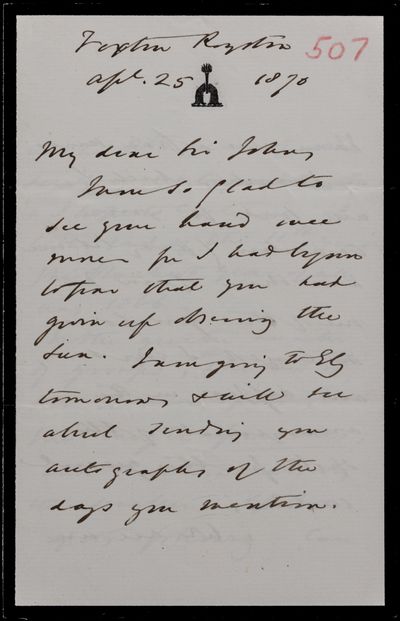 Foxton Royston 507
Apl. 25 1870
My dear Sir John,
I am so glad to
see your hand once
more for I had begun
to fear that you had
given up observing the
Sun. I am going to Ely
tomorrow & will see
about sending you
autographs of the
days you mention.